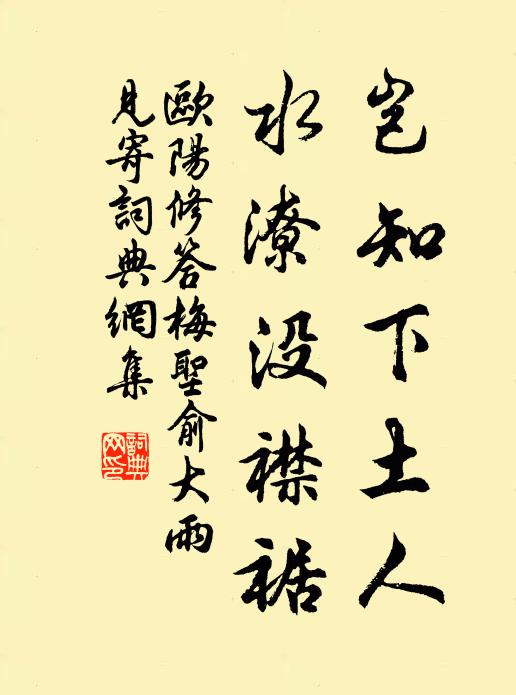 岂知下土人
水潦没襟裾
歐陽修答梅聖俞大雨
見寄詞典網集
詞典网印